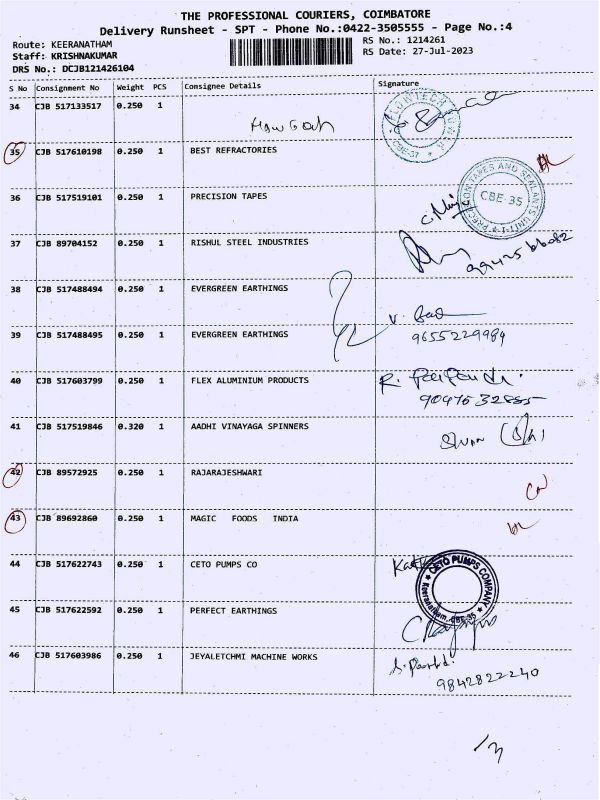 THE PROFESSIONAL COURIERS, COIMBATORE
Delivery Runsheet - SPT - Phone No.:0422-3505555 - Page No.:4
Route: KEERANATHAM RS No.: 1214261
Staff: KRISHNAKUMAR RS Date: 27-Jul-2023
DRS No.: DCJB121426104
S No Consignment No Weight PCS Consignee Details Signature
34 CJB 517133517 0.250 1
CBE-37
35 CJB 517610198 0.250 1 BEST REFRACTORIES
36 CJB 517519101 0.250 1 PRECISION TAPES
PRECISION TAPES AND SEALANTS UNIT-I
CBE-35
37 CJB 89704152 0.250 1 RISHUL STEEL INDUSTRIES
38 CJB 517488494 0.250 1 EVERGREEN EARTHINGS
39 CJB 517488495 0.250 1 EVERGREEN EARTHINGS
9655229984
40 CJB 517603799 0.250 1 FLEX ALUMINIUM PRODUCTS
41 CJB 517519846 0.320 1 AADHI VINAYAGA SPINNERS
42 CJB 89572925 0.250 1 RAJARAJESHWARI
43 CJB 89692860 0.250 1 MAGIC FOODS INDIA
44 CJB 517622743 0.250 1 CETO PUMPS CO
CETO PUMPS COMPANY
Keeranatham, CBE-35
45 CJB 517622592 0.250 1 PERFECT EARTHINGS
46 CJB 517603986 0.250 1 JEYALETCHMI MACHINE WORKS
9842822240
13